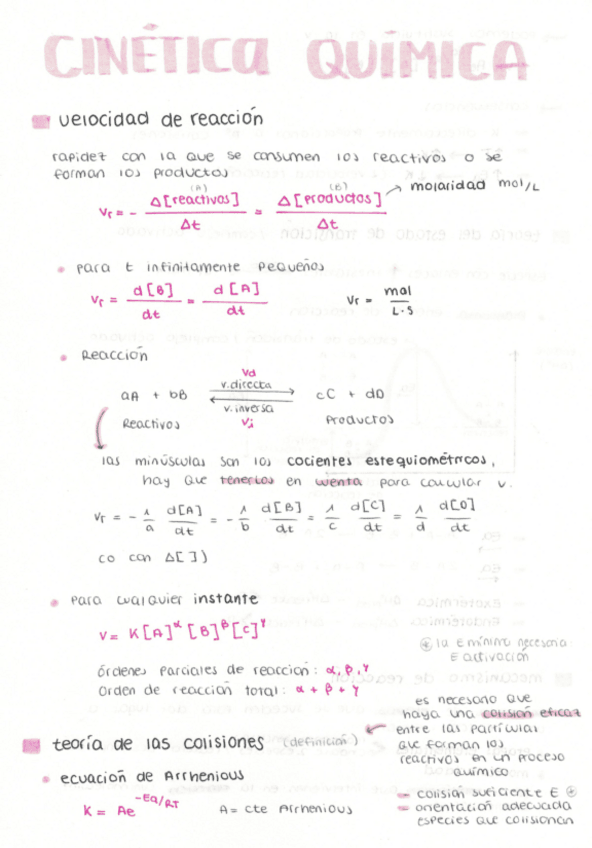 CINÉTICA QUÍMICA
velocidad de reacción
rapidez con la que se consumen los reactivos o se
forman los productos
(A) (B)
Vr = - Δ[reactivos]/Δt = Δ[productos]/Δt → molaridad mol/L
para t infinitamente pequeños
Vr = d[B]/dt = d[A]/dt Vr = mol/L·s
Reacción
Vd
v.directa
aA + bB cC + dD
v.inversa
Reactivos Vi Productos
las minúsculas son los cocientes estequiométricos,
hay que tenerlos en cuenta para calcular v.
Vr = - 1/a d[A]/dt = - 1/b d[B]/dt = 1/c d[C]/dt = 1/d d[D]/dt
(o con Δ[])
para cualquier instante
v = K[A]^α [B]^β [C]^γ
⊕ la E mínima necesaria:
E activación
órdenes parciales de reacción: α, β, γ
Orden de reacción total: α + β + γ
es necesario que
haya una colisión eficaz
entre las partículas
que forman los
reactivos en un proceso
químico
- colisión suficiente E ⊕
- orientación adecuada
especies que colisionan
teoría de las colisiones (definición)
ecuación de Arrhenious
K = Ae^-Ea/RT A = cte Arrhenious